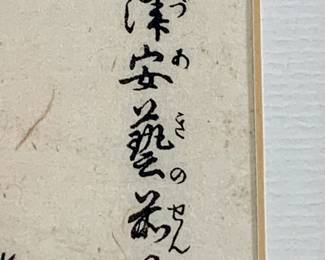 津安藝前
づあきのせん